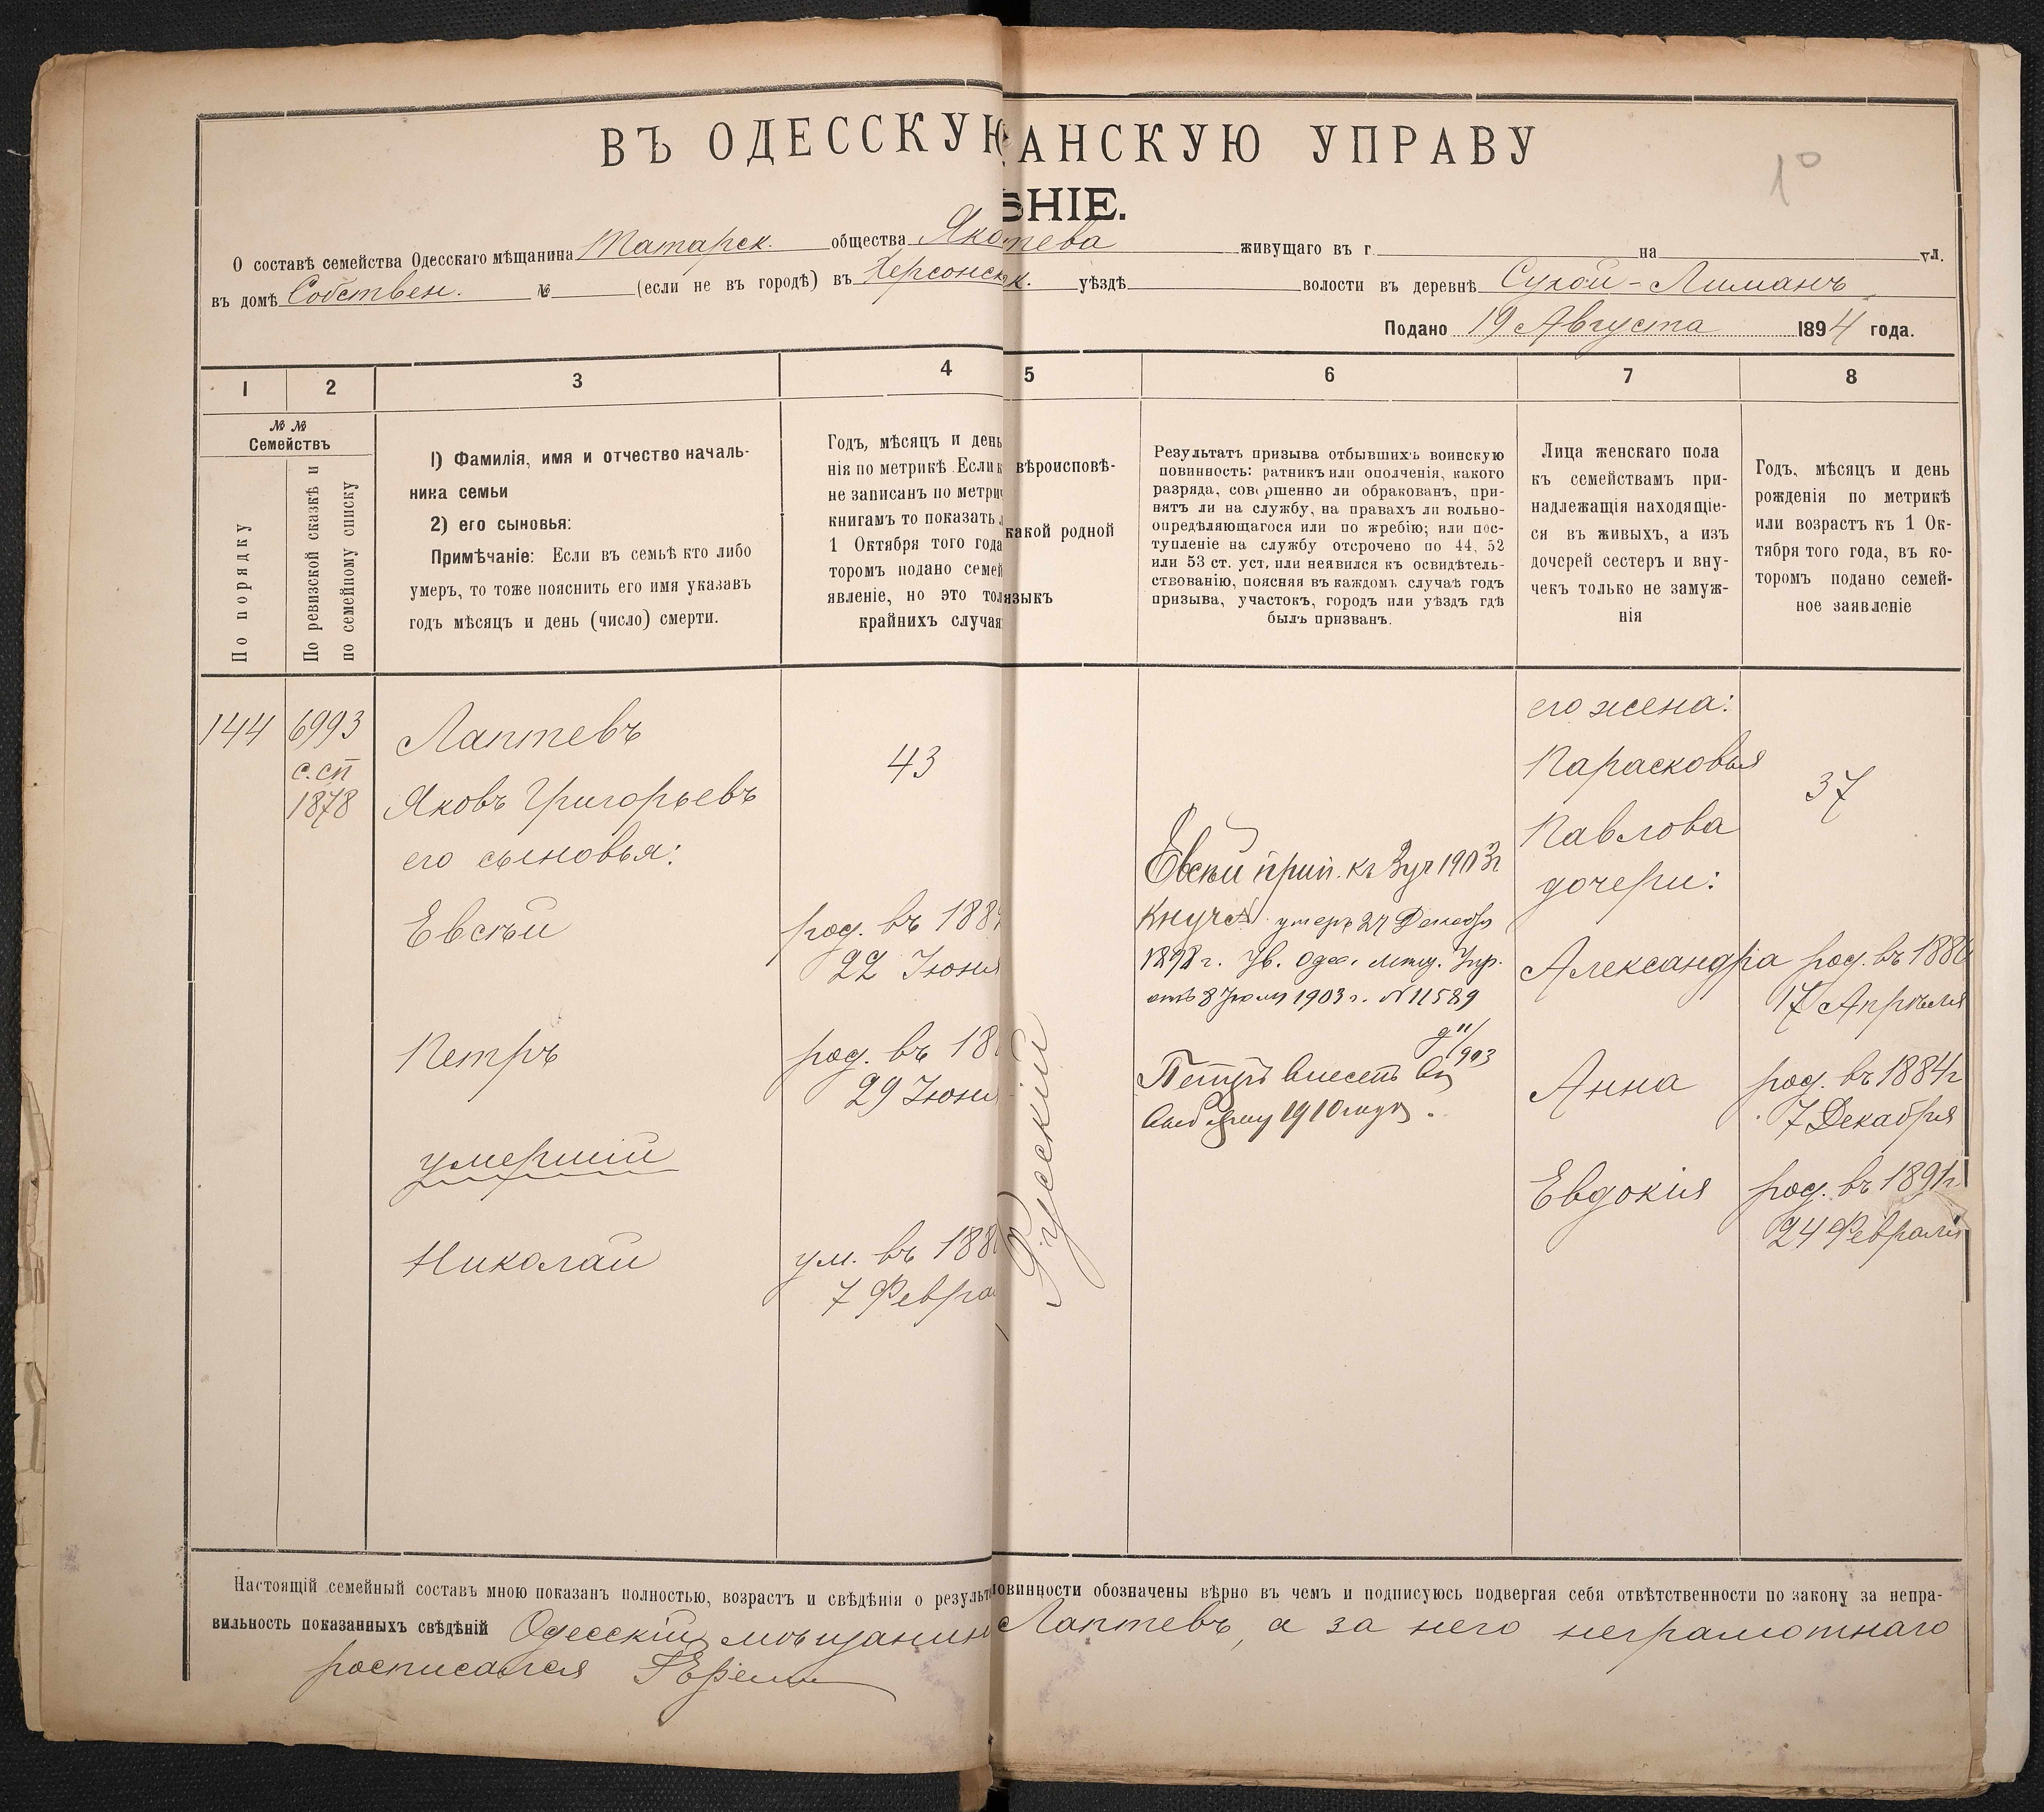 ВЪ ОДЕССКУЮ АНСКУЮ УПРАВУ
10
ѢНІЕ.
О составѣ семейства Одесскаго мѣщанина Татарск. общества живущаго въ г на ул.
въ домѣ Собствен. № (если не въ городѣ) въ Херсонск. уѣздѣ волости въ деревнѣ Сухой-Лиманъ
Подано 19 Августа 1894 года.
1 2 3 4 5 6 7 8
№ №
Семействъ
По порядку
По ревизской сказкѣ и
по семейному списку
1) Фамилія, имя и отчество началь-
ника семьи
2) его сыновья:
Примѣчаніе: Если въ семьѣ кто либо
умеръ, то тоже пояснить его имя указавъ
годъ мѣсяцъ и день (число) смерти.
Годъ, мѣсяцъ и день
нія по метрикѣ. Если
не записанъ по
книгамъ то показать
1 Октября того года
торомъ подано
явленіе, но это
крайнихъ
вѣроисповѣ-
какой родной
языкъ
Результатъ призыва отбывшихъ воинскую
повинность: ратникъ или ополченія, какого
разряда, совершенно ли обракованъ, при-
нятъ ли на службу, на правахъ ли вольно-
опредѣляющагося или по жребію; или пос-
тупленіе на службу отсрочено по 44, 52
или 53 ст. уст. или неявился къ освидѣтель-
ствованію, поясняя въ каждомъ случаѣ годъ
призыва, участокъ, городъ или уѣздъ гдѣ
былъ призванъ.
Лица женскаго пола
къ семействамъ при-
надлежащія находящіе-
ся въ живыхъ, а изъ
дочерей сестеръ и вну-
чекъ только не замуж-
нія
Годъ, мѣсяцъ и день
рожденія по метрикѣ
или возрастъ къ 1 Ок-
тября того года, въ ко-
торомъ подано семей-
ное заявленіе
144
6993
с.сп
1878
Лаптевъ
Яковъ Григорьевъ
его сыновья:
Евсѣй
Петръ
умершій
Николай
43
род. въ 188
22 Июня
род. въ 18
29 Июня
ум. въ 188
7 Февра
Русскій
Евсѣй прип. къ 3 уч 1903 г
умеръ 27 Декабр
1898 г. Ув. Одес. мѣщ. Упр.
отъ 8 Июля 1903 г. № 11589
Петръ внесенъ
1910 года.
его жена:
Парасковья
Павлова
дочери:
Александра
Анна
Евдокія
37
род. въ 188
17 Апрѣля
род. въ 1884 г
7 Декабря
род. въ 1891 г
24 Февраля
Настоящій семейный составъ мною показанъ полностью, возрастъ и свѣдѣнія о повинности обозначены вѣрно въ чемъ и подписуюсь подвергая себя отвѣтственности по закону за непра-
вильность показанныхъ свѣдѣній Одесскій мѣщанинъ Лаптевъ, а за него неграмотнаго
росписался